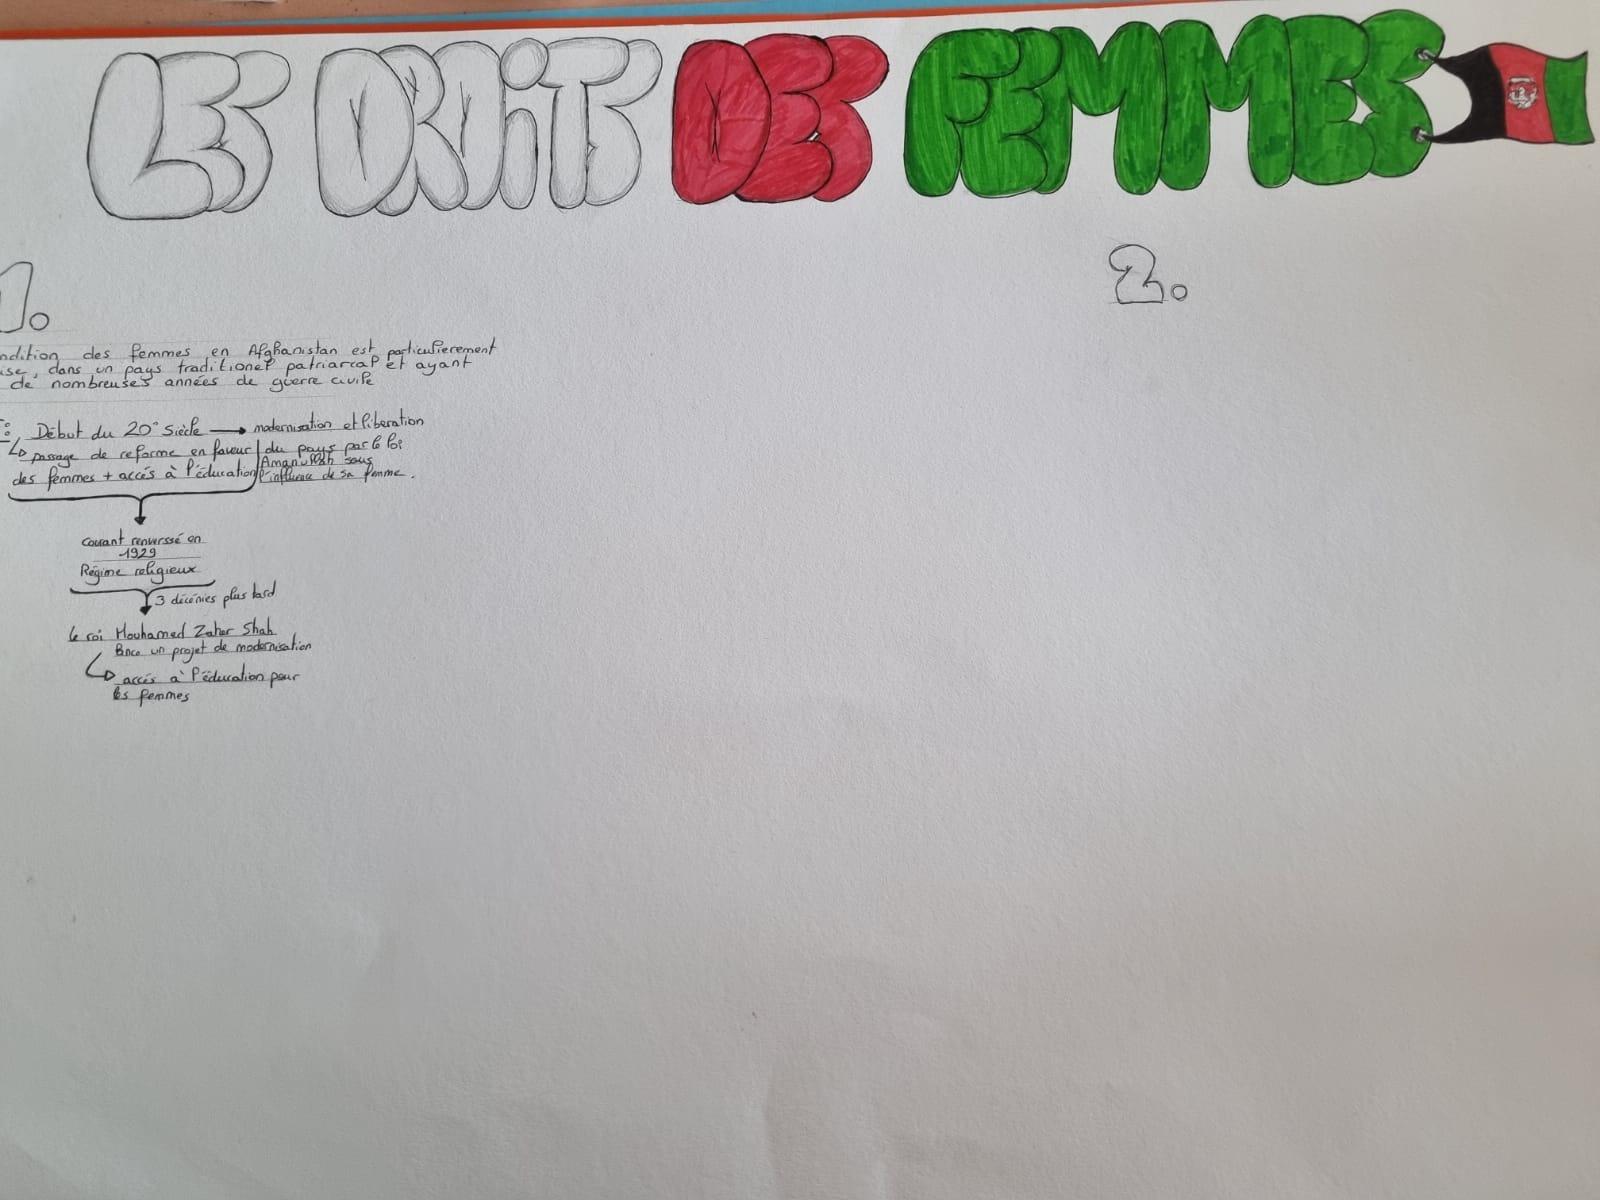 LES DROITS DES FEMMES
1.
2.
ndition des femmes en Afghanistan est particulierement
ise, dans un pays traditionel patriarcal et ayant
de nombreuses années de guerre civile
: Début du 20° Siècle → modernisation et liberation
passage de reforme en faveur du pays par le
des femmes + accés à l'éducation Amanullah sous
l'influence de sa femme.
courant renverssé en
1929
Régime religieux
3 décénies plus tard
le roi Mouhamed Zaher Shah
lance un projet de modernisation
accés à l'éducation pour
les femmes